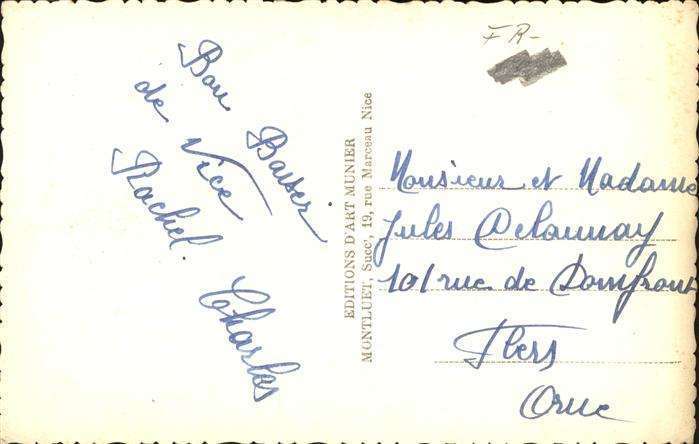 FR-
Bon Baiser
de Nice
Rachel Charles
EDITIONS D'ART MUNIER
MONTLUET, Succr, 19, rue Marceau Nice
Monsieur et Madame
Jules Delaunay
101 rue de Domfront
Flers
Orne